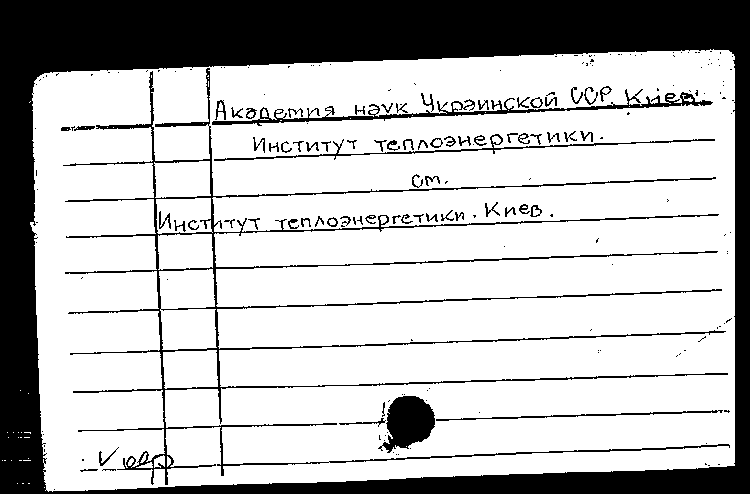 Академия наук Украинской ССР. Киев.
Институт теплоэнергетики.
см.
Институт теплоэнергетики. Киев.